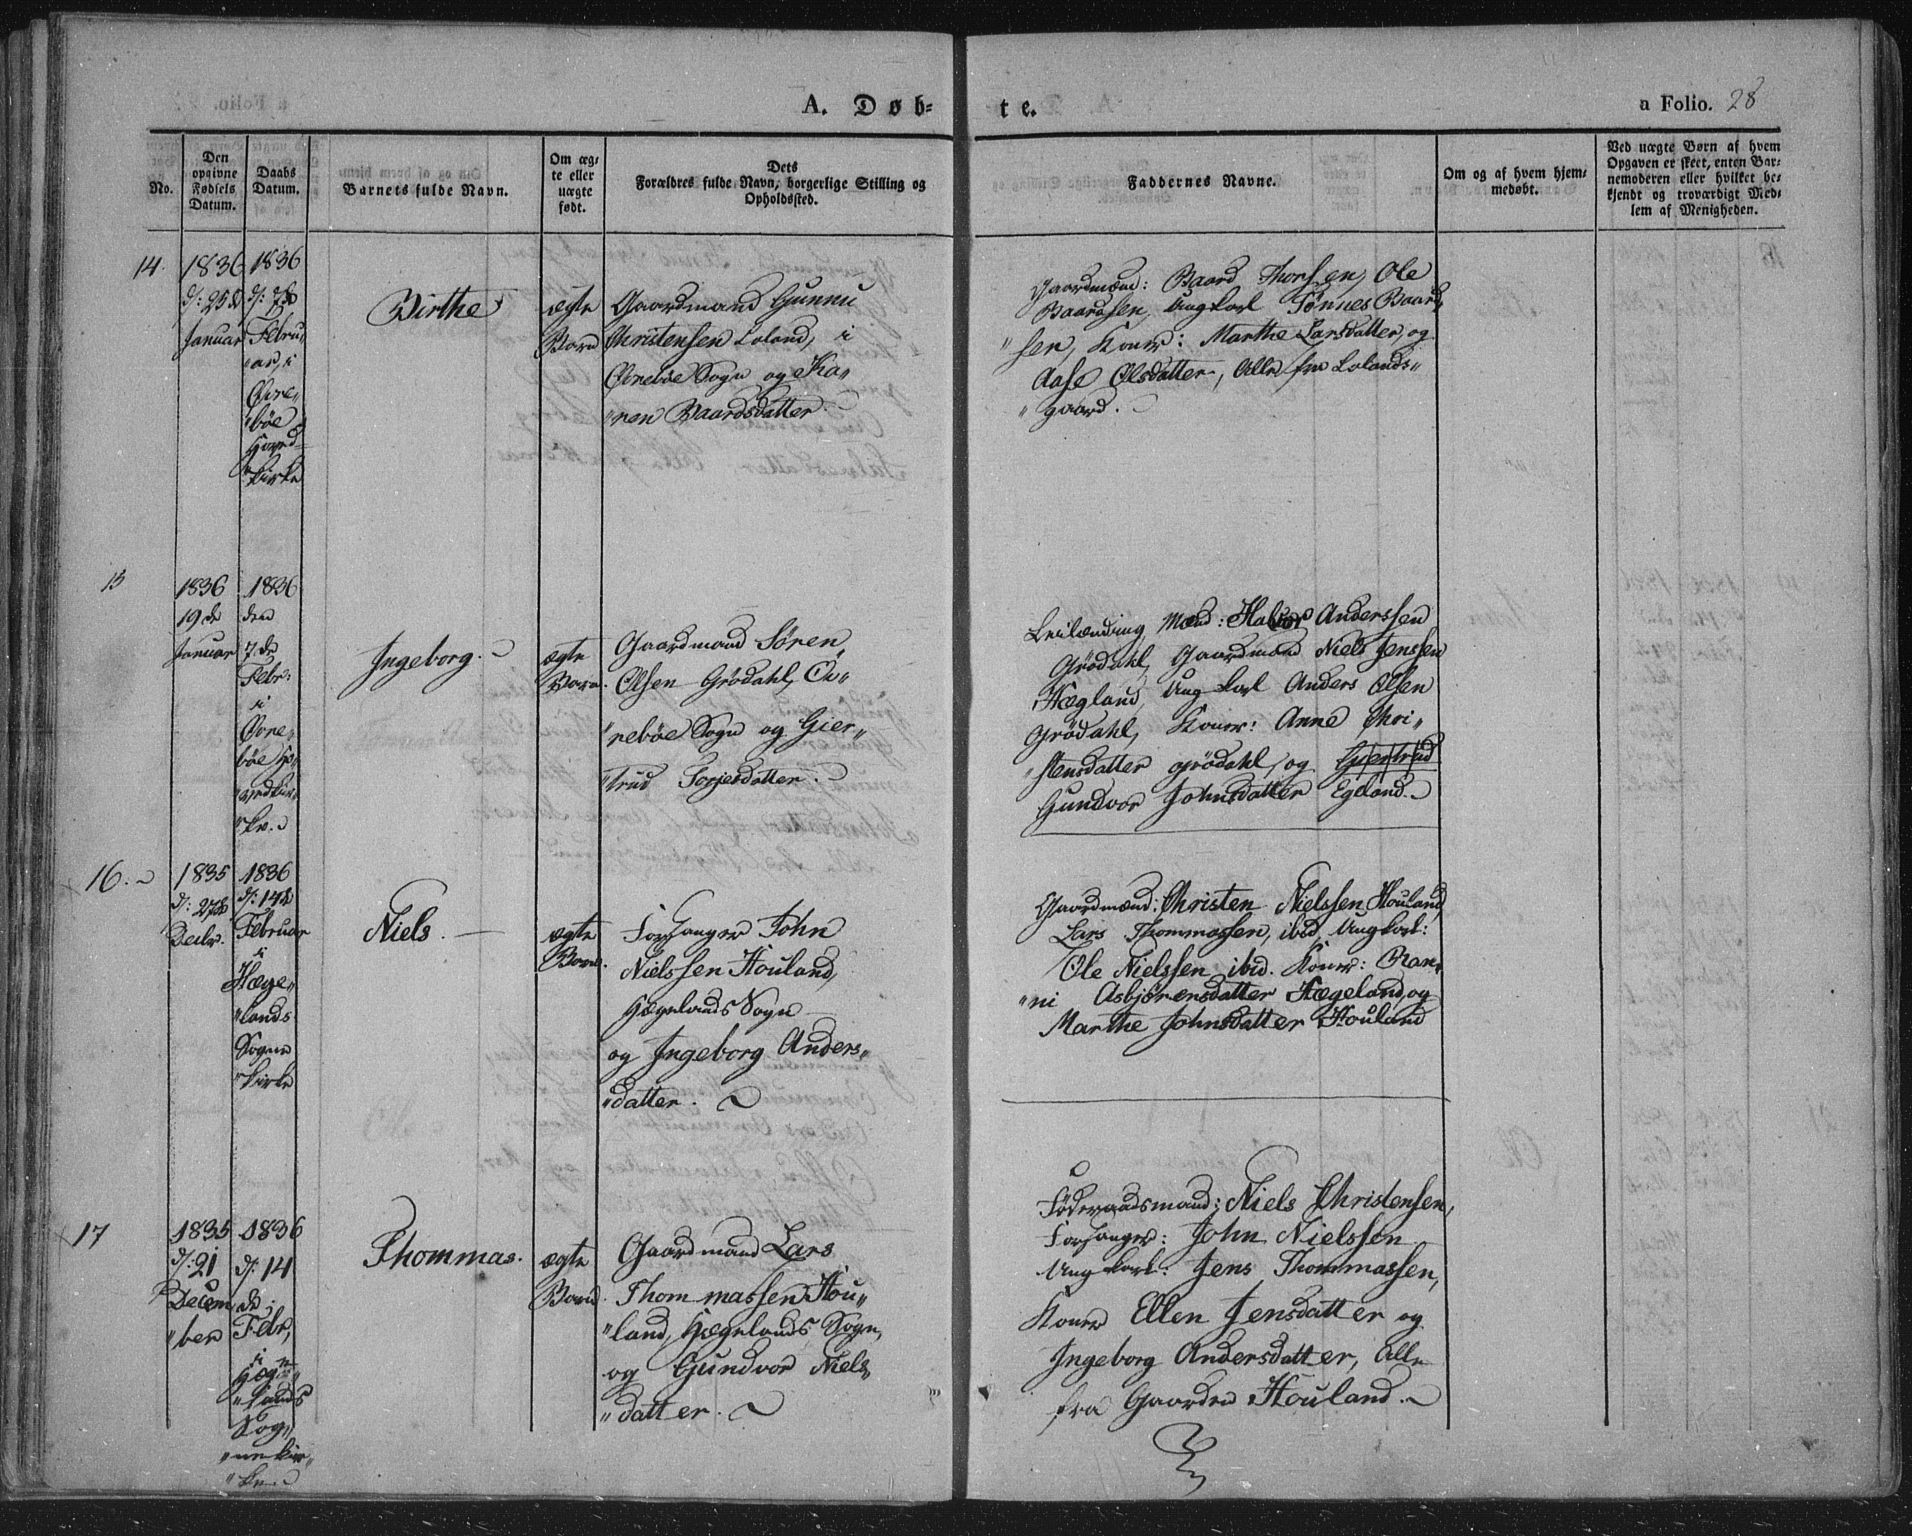 A. Døb-
te.
a Folio. 28
No.
Den
opgivne
Fødsels
Datum.
Daabs
Datum.
Barnets fulde Navn.
Om æg-
te eller
uægte
født.
Dets
Forældres fulde Navn, borgerlige Stilling og
Opholdssted.
Faddernes Navne.
Om og af hvem hjem-
medøbt.
Ved uægte Børn af hvem
Opgaven er skeet, enten Bar-
nemoderen eller hvilket be-
kjendt og troværdigt Med-
lem af Menigheden.
14.
1836
d: 25de
Januar
1836
d: 7de
Febru„
„ar, i
Øvre„
„bøe
Hoved
„kirke
Birthe
ægte
Barn
Gaardmand Gunnu
Christensen Loland, i
Øvrebøe Sogn og Ka„
„ren Baardsdatter.
Gaardmænd: Baard Thorsen, Ole
Baardsen, Ungkarl Tønnes Baard„
„sen, Koner: Marthe Larsdatter, og
Aase Olsdatter, Alle fra Lolands„
„gaard.
15
1836
19de
Januar
1836
den
7de
Febr:
i
Øvre„
bøe Ho„
„vedkir„
„ke.
Ingeborg.
ægte
Barn.
Gaardmand Søren
Olsen Grødahl, Øv„
„rebøe Sogn og Gier„
„trud Torjesdatter.
Leilænding Mænd: Halvor Anderssen
Grødahl, Gaardmand Niels Jenssen
Hægland, Ungkarl Anders Olsen
Grødahl, Koner: Anne Chri„
„stensdatter Grødahl, og Giertrud
Gundvor Johnsdatter Egeland.
16.
1835
d: 27de
Decbr.
1836
d: 14de
Februar
i
Hæge„
„lands
Sogne
„kirke
Niels.
ægte
Barn.
Forpagter John
Nielssen Houland,
Hægelands Sogn
og Ingeborg Anders„
„datter.
Gaardmænd: Christen Nielssen Houland,
Lars Thommassen, ibid, Ungkarl:
Ole Nielssen ibid. Koner: Ran„
„ni Asbjörnsdatter Hægeland, og
Marthe Johnsdatter Houland
17
1835
d: 21
Decem
„ber
1836
d: 14
de
Febr,
i
Hæge„
„lands
Sog„
„nekir„
„ke.
Thommas.
ægte
Barn.
Gaardmand Lars
Thommassen Hou„
„land, Hægelands Sogn,
og Gundvor Niels„
„datter.
Föderaadsmand: Niels Christensen,
Forpagter: John Nielssen
Ungkarl: Jens Thommassen,
Koner Ellen Jensdatter og
Ingeborg Andersdatter, Alle
fra Gaarden Houland.